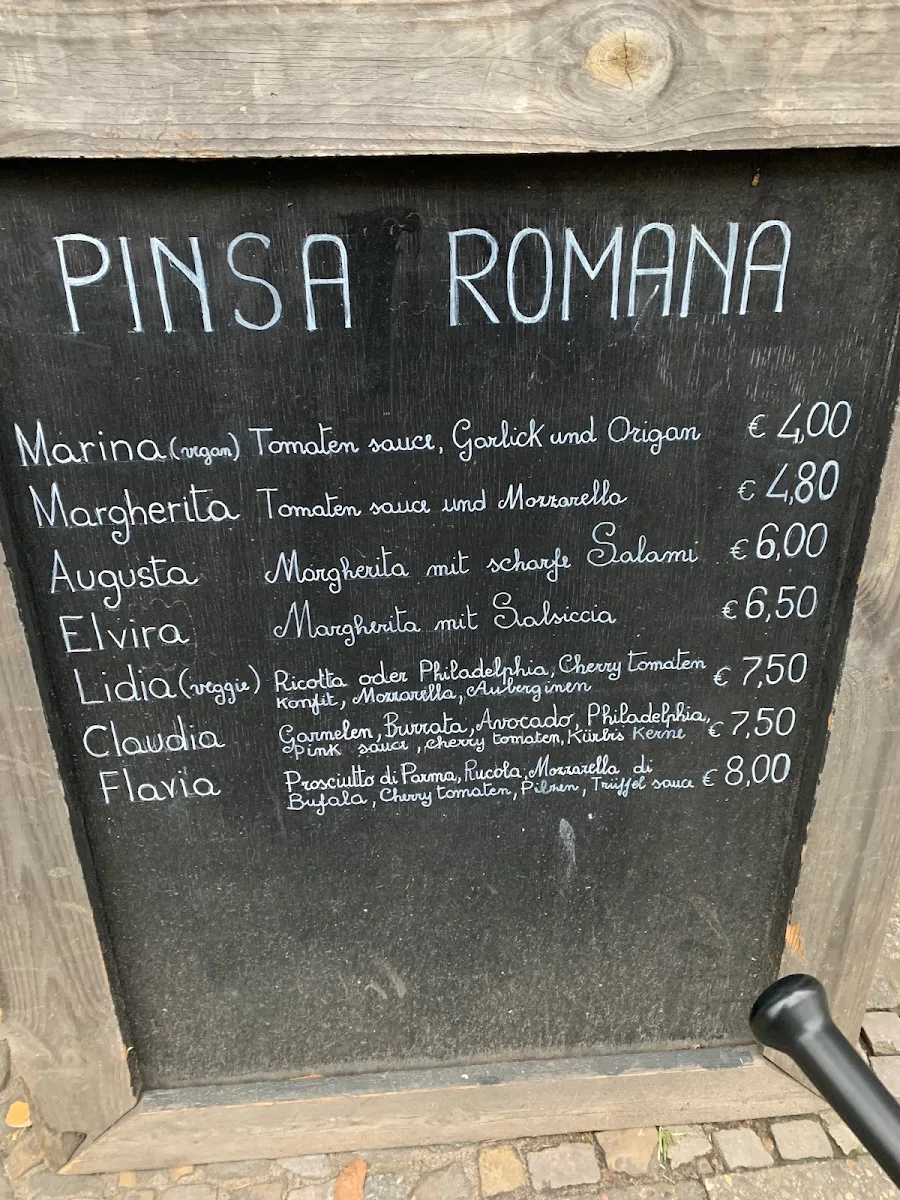 PINSA ROMANA
Marina (vegan) Tomaten sauce, Garlick und Origan € 4,00
Margherita Tomaten sauce und Mozzarella € 4,80
Augusta Margherita mit scharfe Salami € 6,00
Elvira Margherita mit Salsiccia € 6,50
Lidia (veggie) Ricotta oder Philadelphia, Cherry tomaten € 7,50
Konfit, Mozzarella, Auberginen
Claudia Garnelen, Burrata, Avocado, Philadelphia, € 7,50
Pink sauce, cherry tomaten, Kürbis Kerne
Flavia Prosciutto di Parma, Rucola, Mozzarella di € 8,00
Bufala, Cherry tomaten, Pilzen, Trüffel sauce